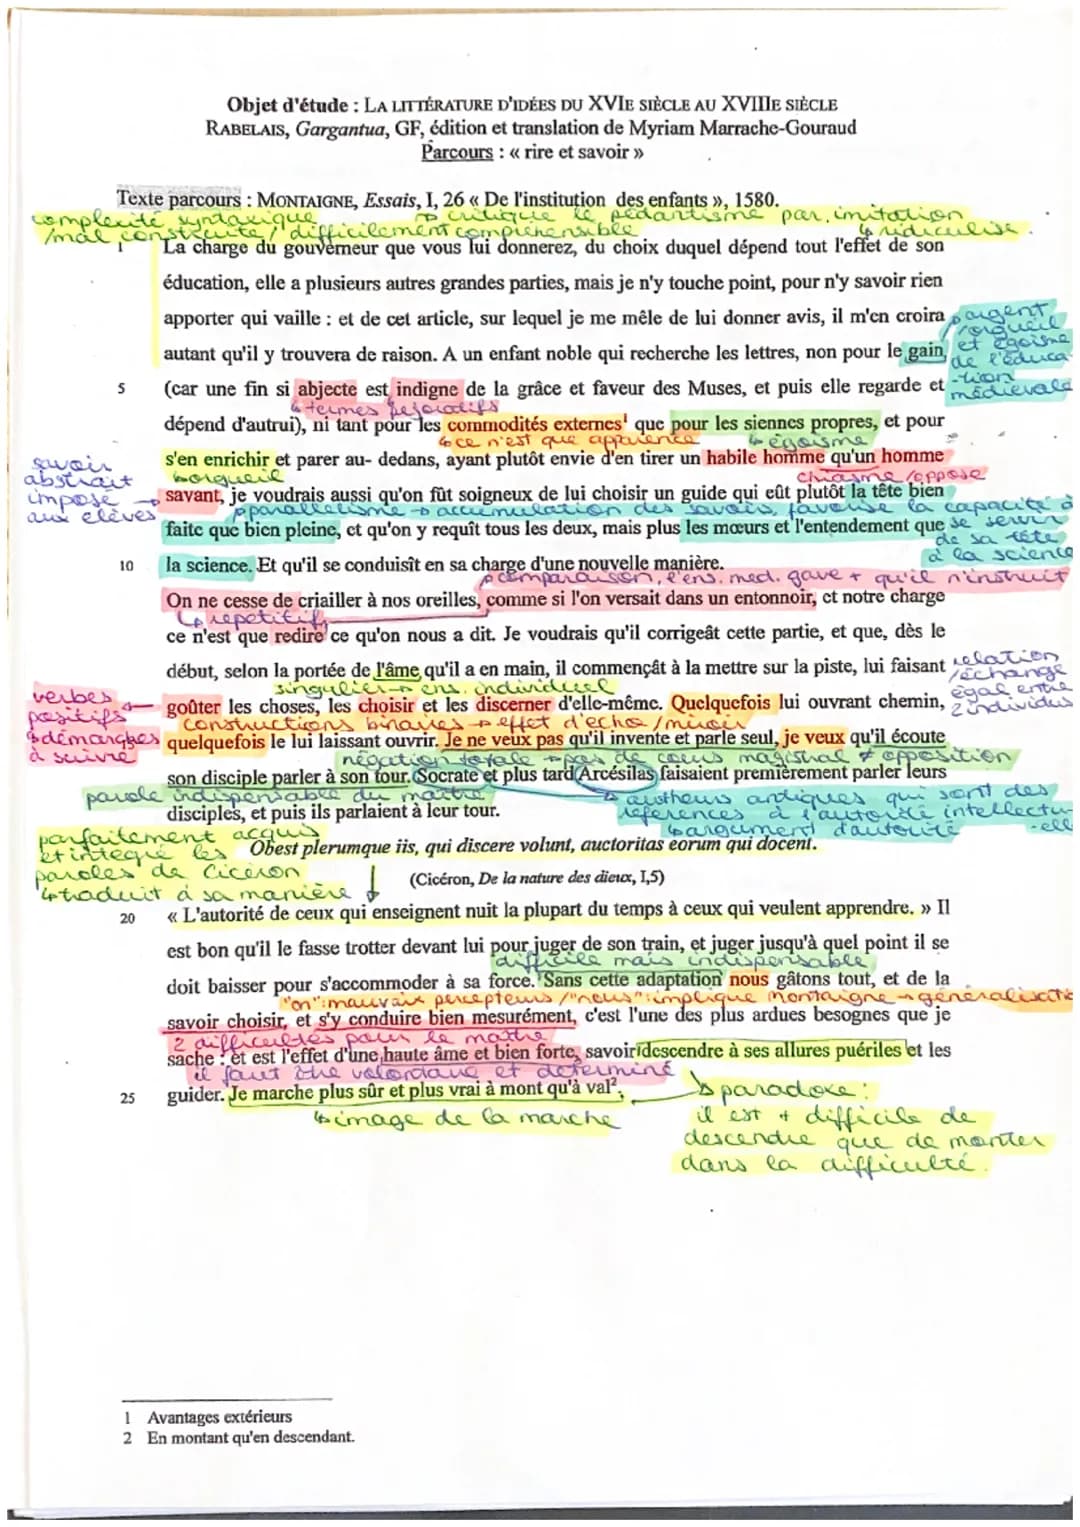 Objet d'étude : LA LITTÉRATURE D'IDÉES DU XVIE SIÈCLE AU XVIIIE SIÈCLE
RABELAIS, Gargantua, GF, édition et translation de Myriam Marrache-Gouraud
Parcours : « rire et savoir »
Texte parcours : MONTAIGNE, Essais, I, 26 « De l'institution des enfants », 1580.
complexité syntaxique
↳ critique le pédantisme par imitation
/mal construite / difficilement compréhensible
↳ ridiculise.
1 La charge du gouverneur que vous lui donnerez, du choix duquel dépend tout l'effet de son
éducation, elle a plusieurs autres grandes parties, mais je n'y touche point, pour n'y savoir rien
apporter qui vaille : et de cet article, sur lequel je me mêle de lui donner avis, il m'en croira
argent
orgueil
autant qu'il y trouvera de raison. A un enfant noble qui recherche les lettres, non pour le gain,
et égoisme
de l'éduca
-tion
médievale
5 (car une fin si abjecte est indigne de la grâce et faveur des Muses, et puis elle regarde et
↳ termes péjoratifs
dépend d'autrui), ni tant pour les commodités externes¹ que pour les siennes propres, et pour
↳ ce n'est que apparence
↳ égoisme
s'en enrichir et parer au- dedans, ayant plutôt envie d'en tirer un habile homme qu'un homme
↳ orgueil
chiasme / oppose
savoir
abstrait
impose →
aux elèves
savant, je voudrais aussi qu'on fût soigneux de lui choisir un guide qui eût plutôt la tête bien
parallelisme → accumulation des savoirs, favorise la capacité à
faite que bien pleine, et qu'on y requît tous les deux, mais plus les mœurs et l'entendement que
se servir
de sa tête
à la science
10 la science. Et qu'il se conduisît en sa charge d'une nouvelle manière.
comparaison, l'ens. med. gave + qu'il n'instruit
On ne cesse de criailler à nos oreilles, comme si l'on versait dans un entonnoir, et notre charge
↳ repetitif
ce n'est que redire ce qu'on nous a dit. Je voudrais qu'il corrigeât cette partie, et que, dès le
début, selon la portée de l'âme qu'il a en main, il commençât à la mettre sur la piste, lui faisant
relation
/échange
égal entre
2 individus
singulier → ens. individuel
verbes
positifs
↳ démarches
à suivre
goûter les choses, les choisir et les discerner d'elle-même. Quelquefois lui ouvrant chemin,
constructions binaires → effet d'écho / miroir
quelquefois le lui laissant ouvrir. Je ne veux pas qu'il invente et parle seul, je veux qu'il écoute
négation totale → pas de cours magistral ≠ opposition
son disciple parler à son tour. Socrate et plus tard Arcésilas faisaient premièrement parler leurs
parole indispensable du maître
disciples, et puis ils parlaient à leur tour.
autheurs antiques qui sont des
références à l'autorité intellectu
-elle
↳ argument d'autorité
parfaitement acquis
et integré les
paroles de Cicéron
↳ traduit à sa manière
Obest plerumque iis, qui discere volunt, auctoritas eorum qui docent.
(Cicéron, De la nature des dieux, I,5)
20 « L'autorité de ceux qui enseignent nuit la plupart du temps à ceux qui veulent apprendre. » Il
est bon qu'il le fasse trotter devant lui pour juger de son train, et juger jusqu'à quel point il se
difficile mais indispensable
doit baisser pour s'accommoder à sa force. Sans cette adaptation nous gâtons tout, et de la
"on": mauvais percepteurs / "nous": implique Montaigne → généralisatio
savoir choisir, et s'y conduire bien mesurément, c'est l'une des plus ardues besognes que je
2 difficultés pour le maître
sache : et est l'effet d'une haute âme et bien forte, savoir descendre à ses allures puériles et les
il faut être volontaire et déterminé
25 guider. Je marche plus sûr et plus vrai à mont qu'à val².
↳ image de la marche
↳ paradoxe :
il est + difficile de
descendre que de monter
dans la difficulté.
1 Avantages extérieurs
2 En montant qu'en descendant.